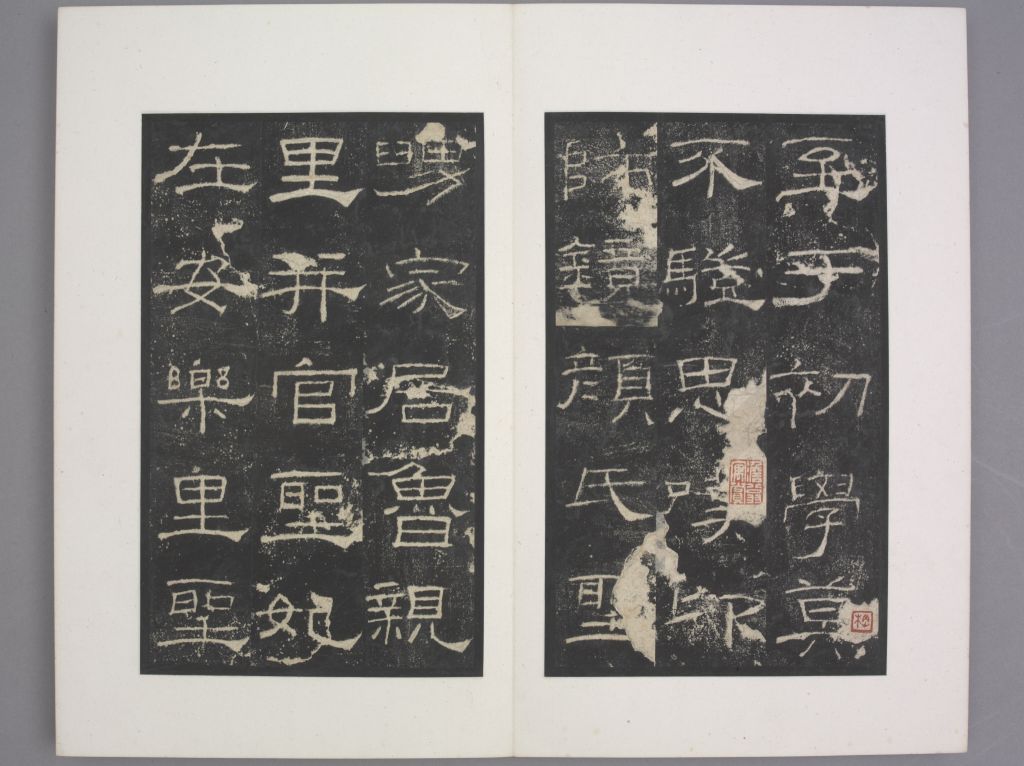 至于初學莫
不驥思嘆卬
師鏡顏氏聖
舅家居魯親
里并官聖妃
在安樂里聖